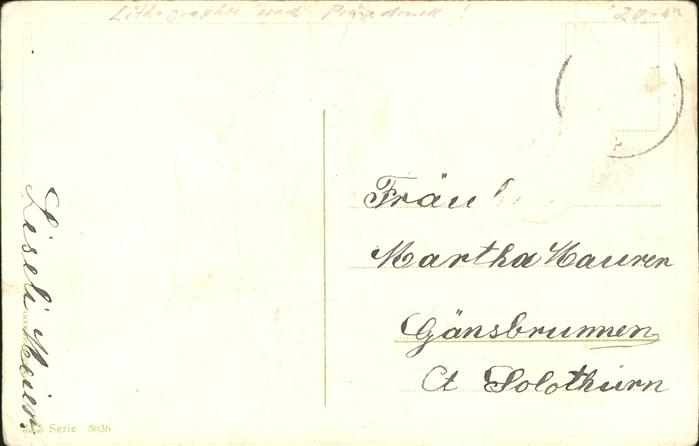 Lithographie und Prägedruck!
20,-
Fräul
Martha Maurer
Gänsbrunnen
Ct Solothurn
Liseli Meier.
Serie 5036